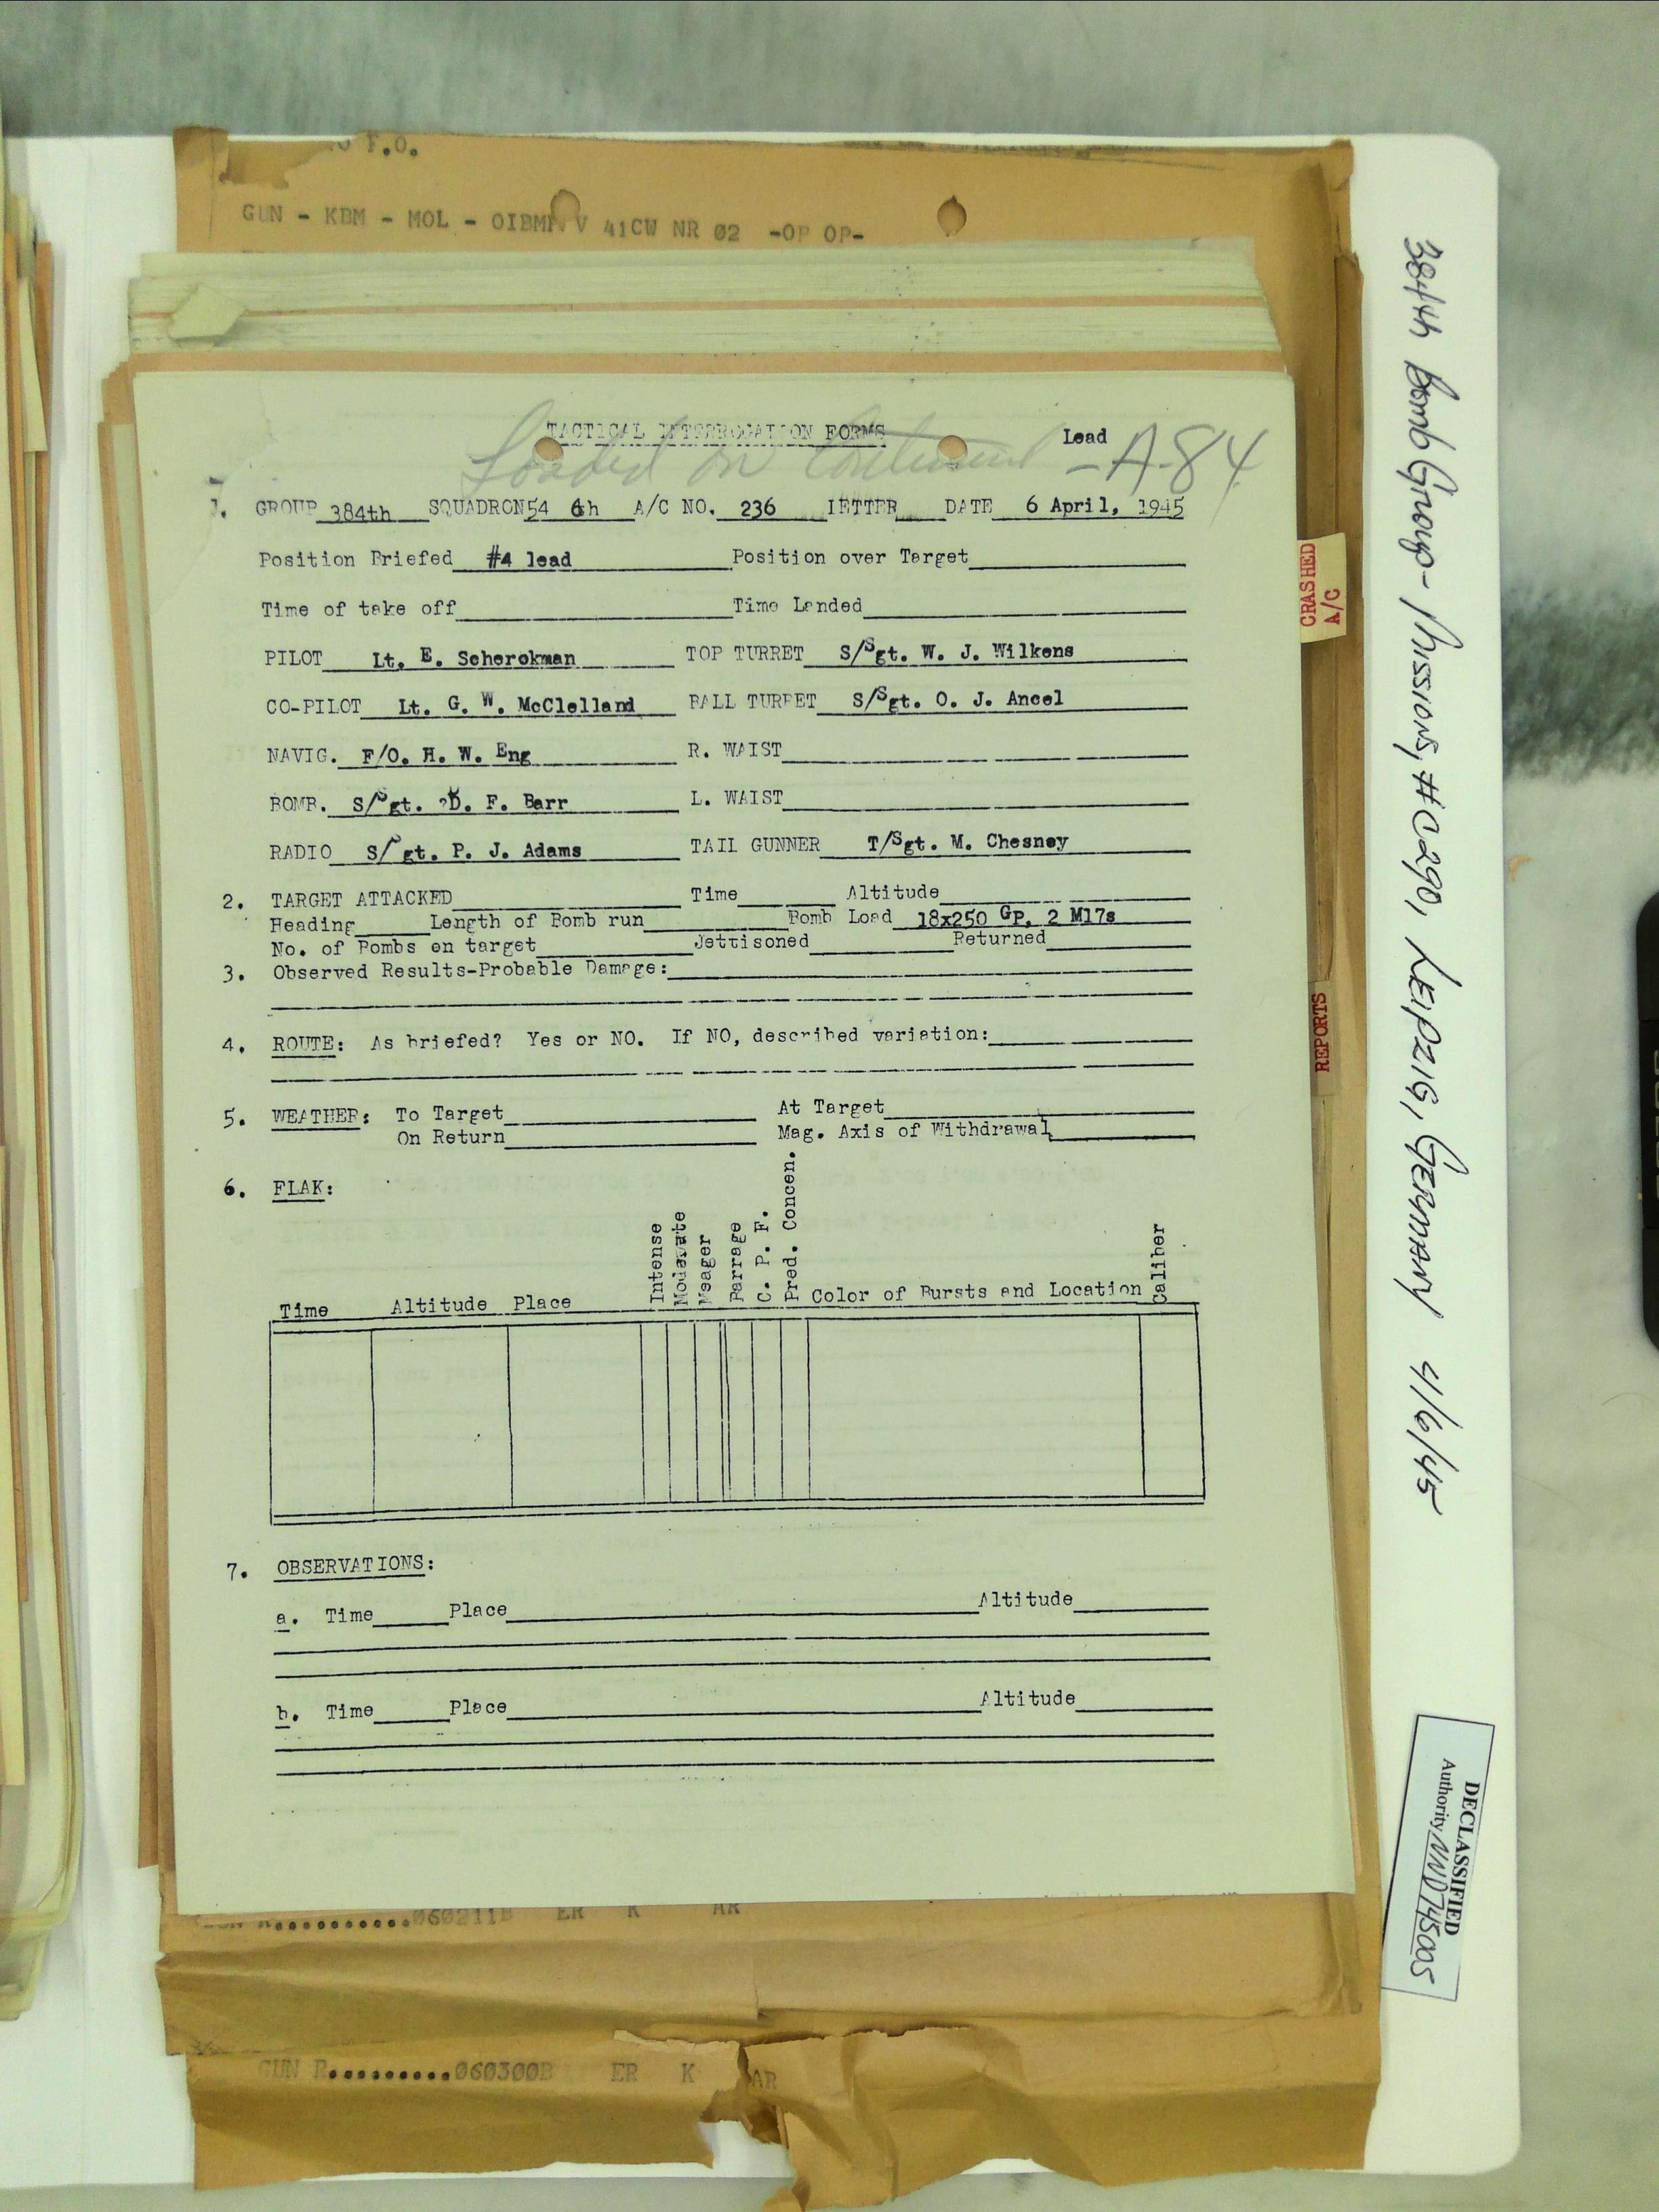 F.O.
GUN - KBM - MOL - OIBMP V 41CW NR 02 -OP OP-
TACTICAL INTERROGATION FORMS Lead
Loaded on Continent - A-84
1. GROUP 384th SQUADRON 54 6th A/C NO. 236 LETTER DATE 6 April, 1945
Position Briefed #4 lead Position over Target
Time of take off Time Landed
PILOT Lt. E. Scherokman TOP TURRET S/Sgt. W. J. Wilkens
CO-PILOT Lt. G. W. McClelland BALL TURRET S/Sgt. O. J. Ancel
NAVIG. F/O. H. W. Eng R. WAIST
BOMB. S/Sgt. D. F. Barr L. WAIST
RADIO S/Sgt. P. J. Adams TAIL GUNNER T/Sgt. M. Chesney
2. TARGET ATTACKED Time Altitude
Heading Length of Bomb run Bomb Load 18x250 GP, 2 M17s
No. of Bombs on target Jettisoned Returned
3. Observed Results-Probable Damage:
4. ROUTE: As briefed? Yes or NO. If NO, described variation:
5. WEATHER: To Target At Target
On Return Mag. Axis of Withdrawal
6. FLAK:
Time Altitude Place Intense Moderate Meager Barrage C. P. F. Pred. Concen. Color of Bursts and Location Caliber
7. OBSERVATIONS:
a. Time Place Altitude
b. Time Place Altitude
060211B ER K AR
GUN R..........060300B ER K AR
CRASHED
A/C
REPORTS
384th Bomb Group - Missions, #0290, LEIPZIG, GERMANY 4/6/45
DECLASSIFIED
Authority NND745005